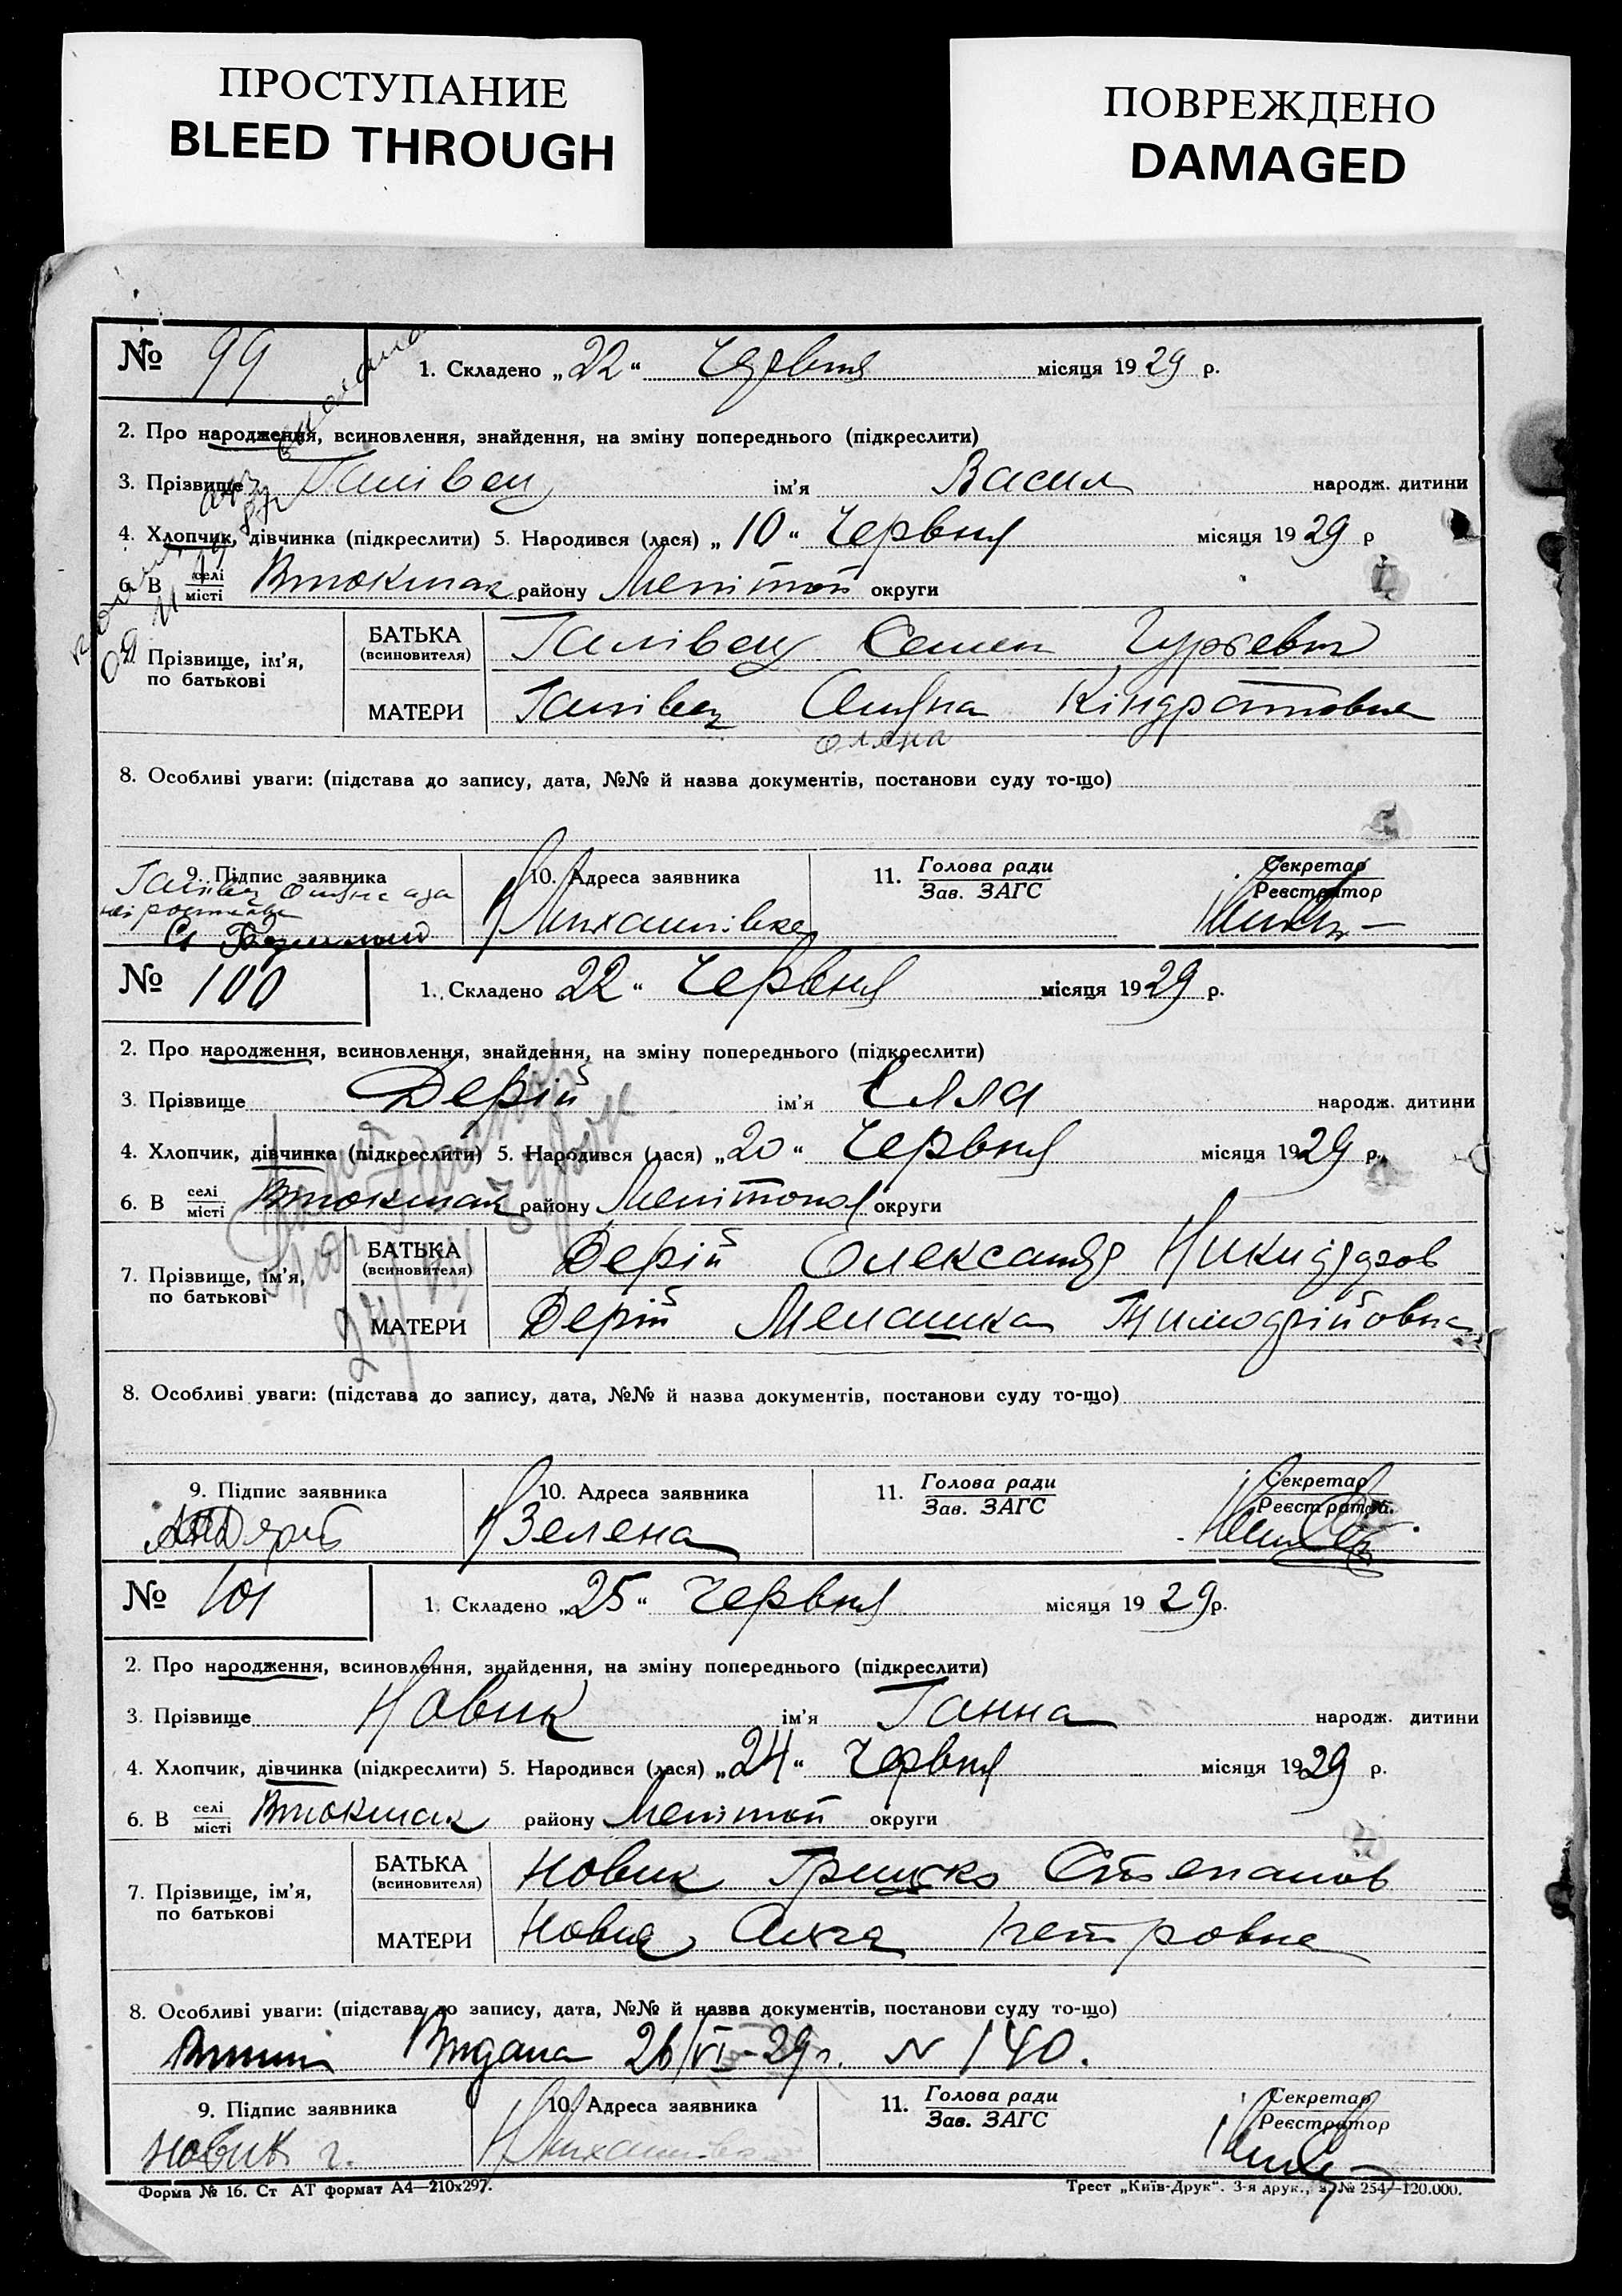 ПРОСТУПАНИЕ
BLEED THROUGH
ПОВРЕЖДЕНО
DAMAGED
№ 99 1. Складено „22“ Червня місяця 1929 р.
2. Про народження, всиновлення, знайдення, на зміну попереднього (підкреслити)
3. Прізвище Галівец ім’я Васил народж. дитини
4. Хлопчик, дівчинка (підкреслити) 5. Народився (лася) „10“ Червня місяця 1929 р
6. В селі місті Втокмак району Мелітоп округи
Прізвище, ім’я, по батькові БАТЬКА (всиновителя) Галівец Семен
МАТЕРИ Галівец Кіндратовна
Оляна
8. Особливі уваги: (підстава до запису, дата, №№ й назва документів, постанови суду то-що)
9. Підпис заявника 10. Адреса заявника 11. Голова ради Зав. ЗАГС Секретар Реєстратор
Галівец
Михайлівка
№ 100 1. Складено 22“ Червня місяця 1929 р.
2. Про народження, всиновлення, знайдення, на зміну попереднього (підкреслити)
3. Прізвище Дерій ім’я Елля народж. дитини
4. Хлопчик, дівчинка (підкреслити) 5. Народився (лася) „20“ Червня місяця 1929 р.
6. В селі місті Втокмак району Мелітопол округи
7. Прізвище, ім’я, по батькові БАТЬКА (всиновителя) Дерій Олександр
МАТЕРИ Дерій Мелашка
8. Особливі уваги: (підстава до запису, дата, №№ й назва документів, постанови суду то-що)
9. Підпис заявника 10. Адреса заявника 11. Голова ради Зав. ЗАГС Секретар Реєстратор.
Зелена
№ 101 1. Складено „25“ Червня місяця 1929 р.
2. Про народження, всиновлення, знайдення, на зміну попереднього (підкреслити)
3. Прізвище Новик ім’я Ганна народж. дитини
4. Хлопчик, дівчинка (підкреслити) 5. Народився (лася) „24“ Червня місяця 1929 р.
6. В селі місті Втокмак району Мелітоп округи
7. Прізвище, ім’я, по батькові БАТЬКА (всиновителя) Новик Грицко Степанов
МАТЕРИ Петровна
8. Особливі уваги: (підстава до запису, дата, №№ й назва документів, постанови суду то-що)
Видана 26/VI-29 р. N 140.
9. Підпис заявника 10. Адреса заявника 11. Голова ради Зав. ЗАГС Секретар Реєстратор
Новик г. Михайлівка
Форма № 16. Ст АТ формат А4—210х297. Трест „Київ-Друк“. 3-я друк., з. № 2547—120.000.